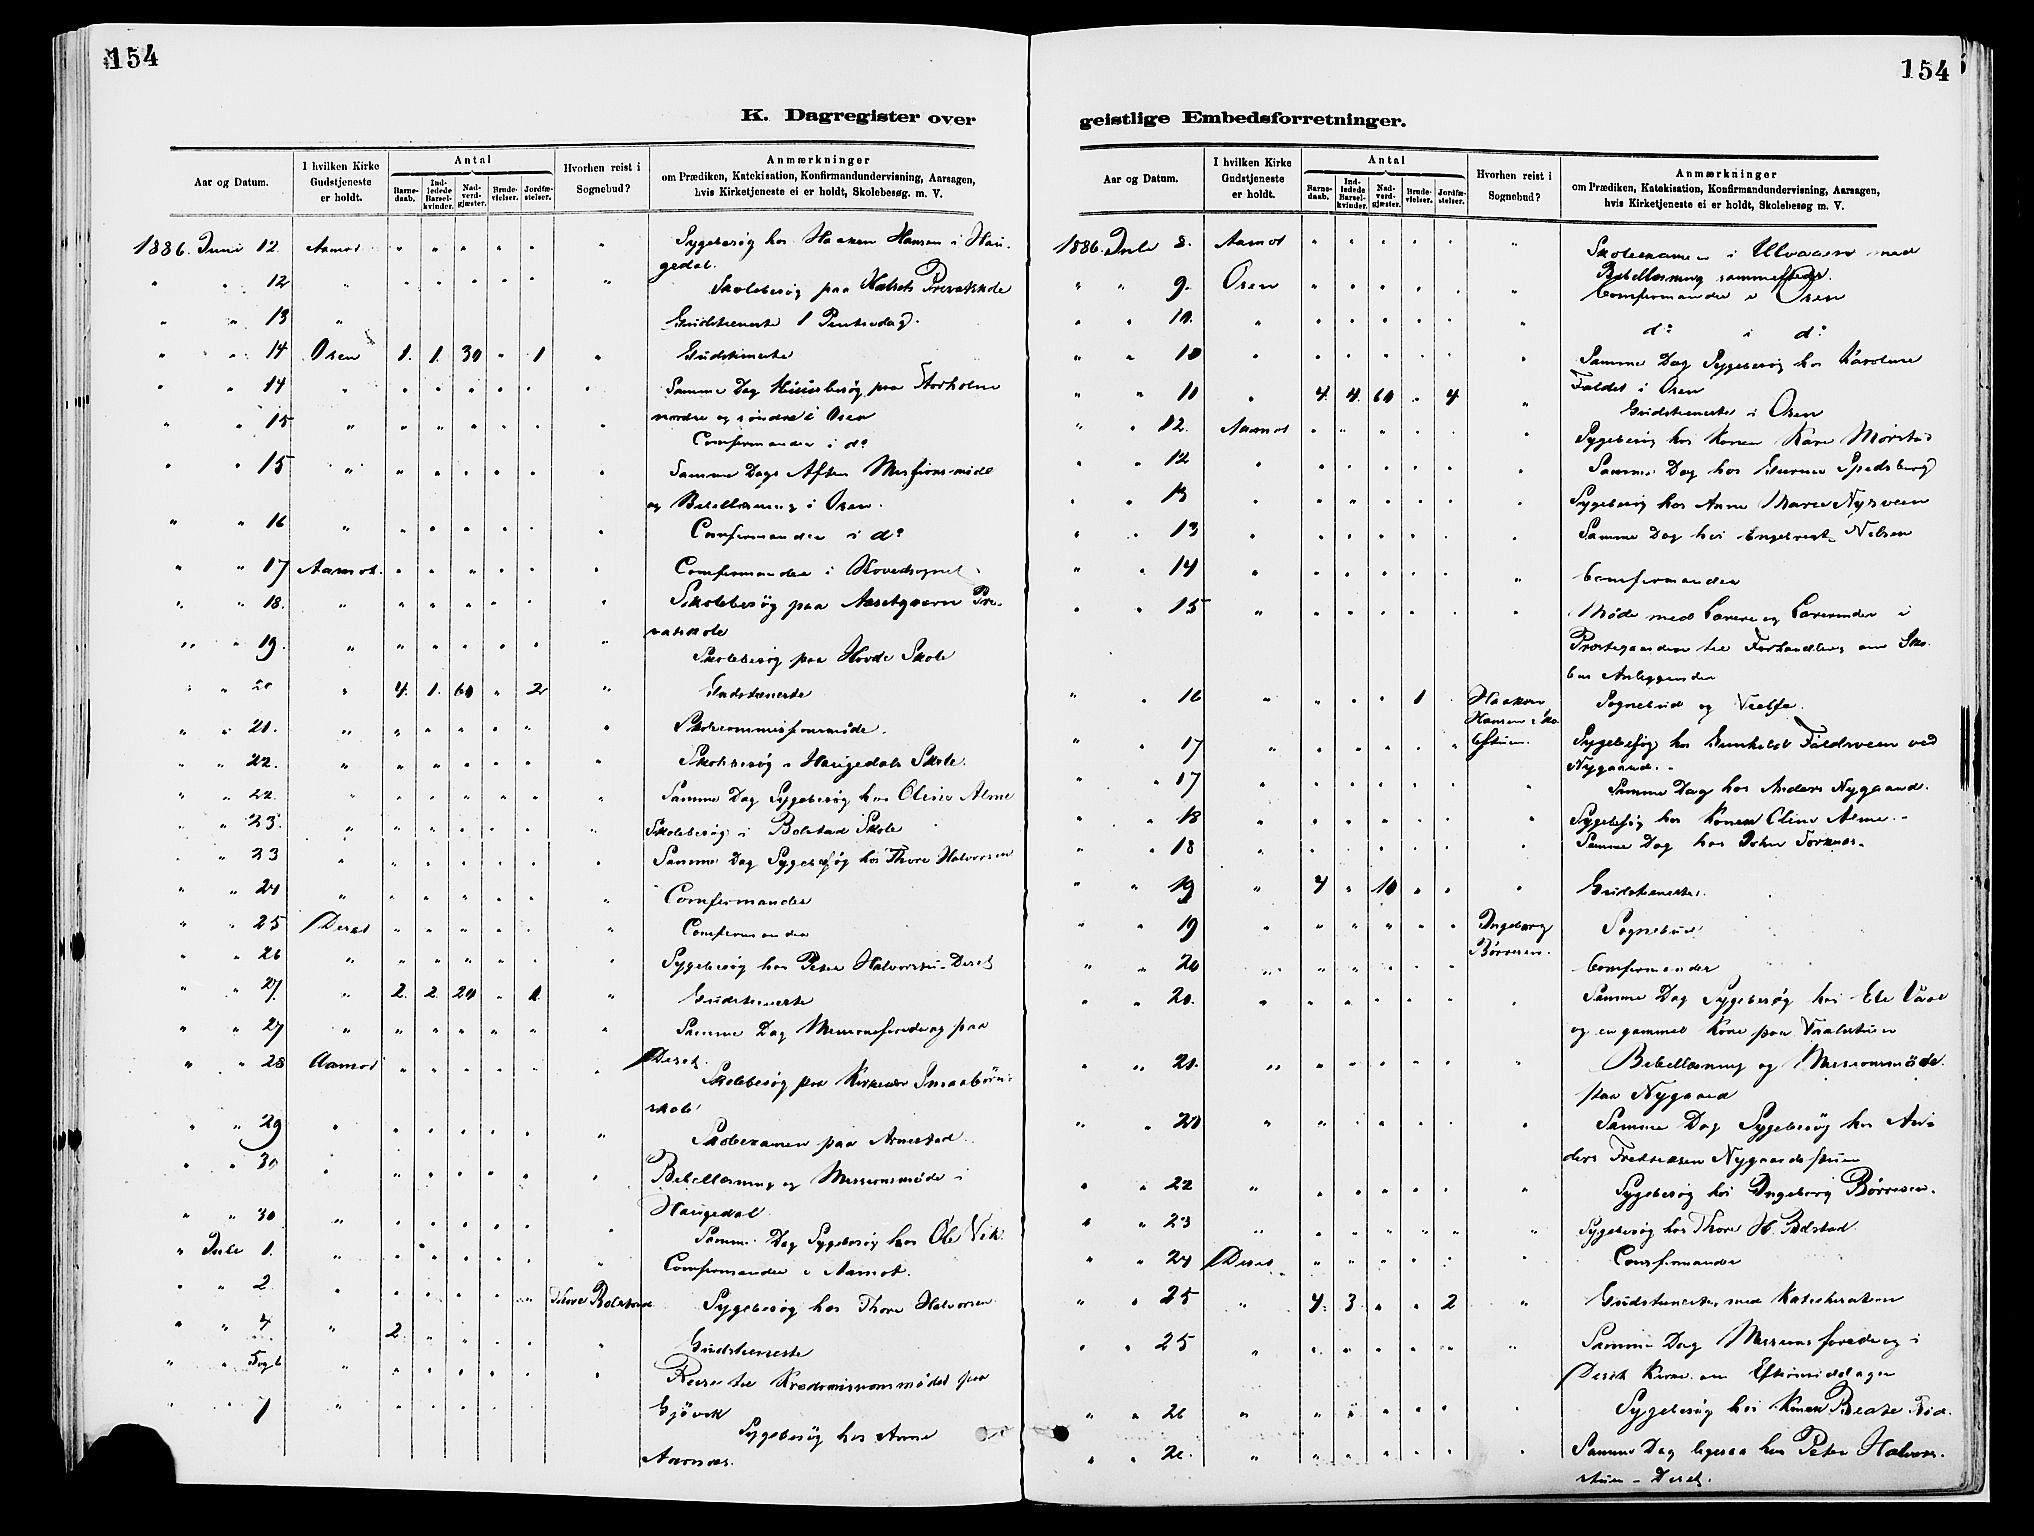 154
K. Dagregister over
Aar og Datum.
I hvilken Kirke Gudstjeneste er holdt.
Antal
Barnedaab.
Indledede Barselkvinder.
Nadverdgjæster.
Brudevielser.
Jordfæstelser.
Hvorhen reist i Sognebud?
Anmærkninger
om Prædiken, Katekisation, Konfirmandundervisning, Aarsagen,
hvis Kirketjeneste ei er holdt, Skolebesøg. m. V.
1886. Juni 12 Aamot " " " " " " Sygebesøg hos Haaken Hansen i Hau-
gedal.
" " 12 " " " " " " Skolebesøg paa Privatskole
" " 13 " Gudstieneste 1 Pintsedag.
" " 14 Osen 1. 1. 30 " 1 " Gudstieneste
" " 14 " " " " " " " Samme Dag Huusbesøg paa Storholm
nordre og søndre i Osen
" " 15 " " " " " " " Comfirmander i do
" " 15 " " " " " " " Samme Dags Aften Missionsmøde
og Bibellæsning i Osen.
" " 16 " " " " " " " Comfirmander i do
" " 17 Aamot. " " " " " " Comfirmander i Hovedsognet
" " 18. " " " " " " " Skolebesøg paa Pri-
vatskole
" " 19. " " " " " " " Skolebesøg paa Hovde Skole
" " 20 " 4. 1. 60 " 2 " Gudstieneste
" " 21. " " " " " " " Skolecommissionsmøde.
" " 22. " " " " " " " Skolebesøg i Haugedals Skole.
" " 22. " " " " " " " Samme Dag Sygebesøg hos Oline Alme
" " 23. " " " " " " " Skolebesøg i Bolstad Skole
" " 23 " " " " " " " Samme Dag Sygebesøg hos Thore Halvorsen
" " 24 " " " " " " " Comfirmander
" " 25 Deset " " " " " " Comfirmander
" " 26 " " " " " " " Sygebesøg hos Peter Halvorstu - Deset
" " 27. " 2. 2. 20 " 1. " Gudstieneste
" " 27 " " " " " " " Samme Dag Missionsforedrag paa
Deset.
" " 28 Aamot " " " " " " Skolebesøg paa Smaabørn-
skole
" " 29 " " " " " " " Skoleexamen paa Arnestad.
" " 30 " " " " " " " Bibellæsning og Missionsmøde i
Haugedal
" " 30 " " " " " " " Samme Dag Sygebesøg hos Ole Vik.
" Juli 1. " " " " " " " Comfirmander i Aamot.
" " 2 " " " " " " Thore Bolstad Sygebesøg hos Thore Halvorsen
" " 4 " 2. " " " " " Gudstieneste
" " 5 og 6 " " " " " " " Reise til paa
Gjøvik
" " 7 " " " " " " Sygebesøg hos Anne
Aasnæs.
154
geistlige Embedsforretninger.
Aar og Datum.
I hvilken Kirke Gudstjeneste er holdt.
Antal
Barnedaab.
Indledede Barselkvinder.
Nadverdgjæster.
Brudevielser.
Jordfæstelser.
Hvorhen reist i Sognebud?
Anmærkninger
om Prædiken, Katekisation, Konfirmandundervisning, Aarsagen,
hvis Kirketjeneste ei er holdt, Skolebesøg m. V.
1886. Juli 8. Aamot " " " " " " Skoleexamen i Ulvaaen med
Bibellæsning sammesteds.
" " 9. Osen " " " " " " Comfirmander i Osen
" " 10. " " " " " " " do i do
" " 10 " " " " " " " Samme Dag Sygebesøg hos Karoline
Faldet i Osen
" " 11 " 4. 4. 60 " 4 " Gudstieneste i Osen
" " 12. Aamot " " " " " " Sygebesøg hos Konen Kari Mørstad
" " 12 " " " " " " " Samme Dag hos Spedsberg
" " 13 " " " " " " " Sygebesøg hos Anne Marie Nysveen
" " 13 " " " " " " " Samme Dag hos Engebregt Nilsen
" " 14 " " " " " " " Comfirmander
" " 15 " " " " " " " Møde med Lærere og Lærerinder i
Præstegaarden til Forhandling om Sko-
len Anliggender
" " 16 " " " " 1 " Haaken Hansen Sognebud og Vielse.
" " 17 " " " " " " Sygebesøg hos Gunhild Faldsveen ved
Nygaard. -
" " 17 " " " " " " " Samme Dag hos Anders Nygaard.
" " 18 " " " " " " " Sygebesøg hos Konen Oline Alme. -
" " 18 " " " " " " " Samme Dag hos John Torknæs. -
" " 19 " 4 " 10 " " " Gudstieneste.
" " 19 " " " " " " Ingeborg Børresen. Sognebud
" " 20 " " " " " " Comfirmander
" " 20. " " " " " " " Samme Dag Sygebesøg hos
og en gammel Kone paa
" " 21. " " " " " " " Bibellæsning og Missionsmøde
paa Nygaard
" " 20 " " " " " " " Samme Dag Sygebesøg hos An-
ders Nygaardstuen
" " 22 " " " " " " " Sygebesøg hos Ingeborg Børresen.
" " 23 " " " " " " " Sygebesøg hos Thore H. Bolstad.
" " 24 Deset " " " " " " Comfirmander
" " 25 " 4. 3. " " 2 " Gudstieneste med Katechisation
" " 25 " " " " " " " Samme Dag Missionsforedrag i
Deset Kirke om Eftermiddagen
" " 26 " " " " " " " Sygebesøg hos Konen Beate
" " 26. " " " " " " " Samme Dag ligesaa hos Peter Halvor-
stuen - Deset.